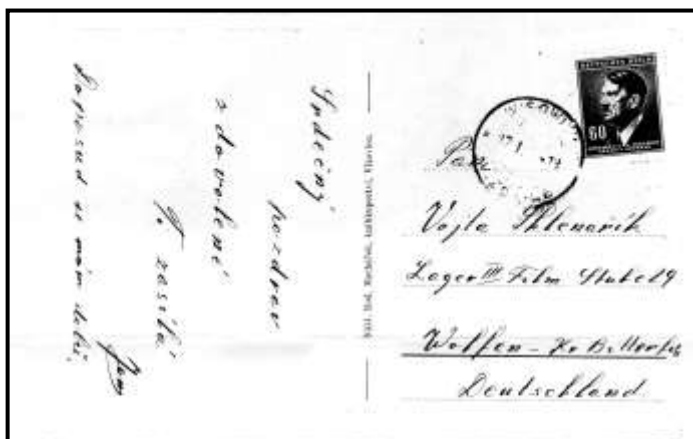 Srdečný
pozdrav
z dovolené
Ti zasílá
Jan
Doposud se mám dobře,
DEUTSCHES REICH
60
Pan
Vojta
Lager III Film Stube 19
Wolfen - Kr. Bitterfeld
Deutschland.